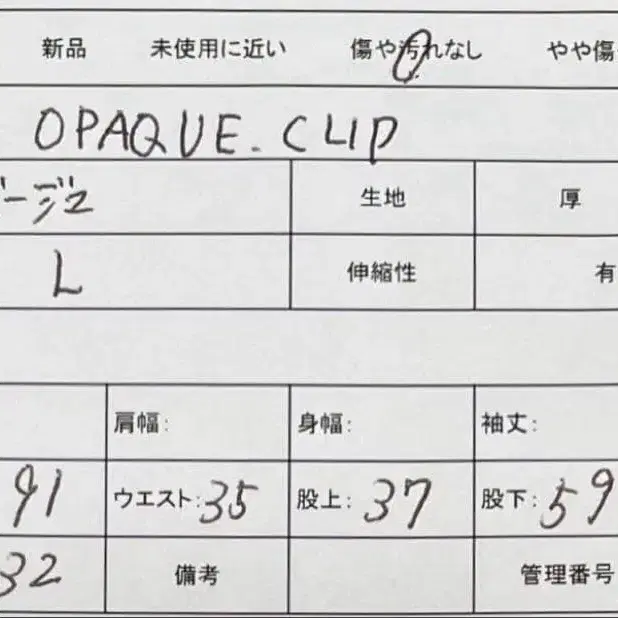 新品 未使用に近い 傷や汚れなし やや傷
OPAQUE.CLIP
ベージュ 生地 厚
L 伸縮性 有
肩幅: 身幅: 袖丈:
91 ウエスト:35 股上:37 股下:59
32 備考 管理番号